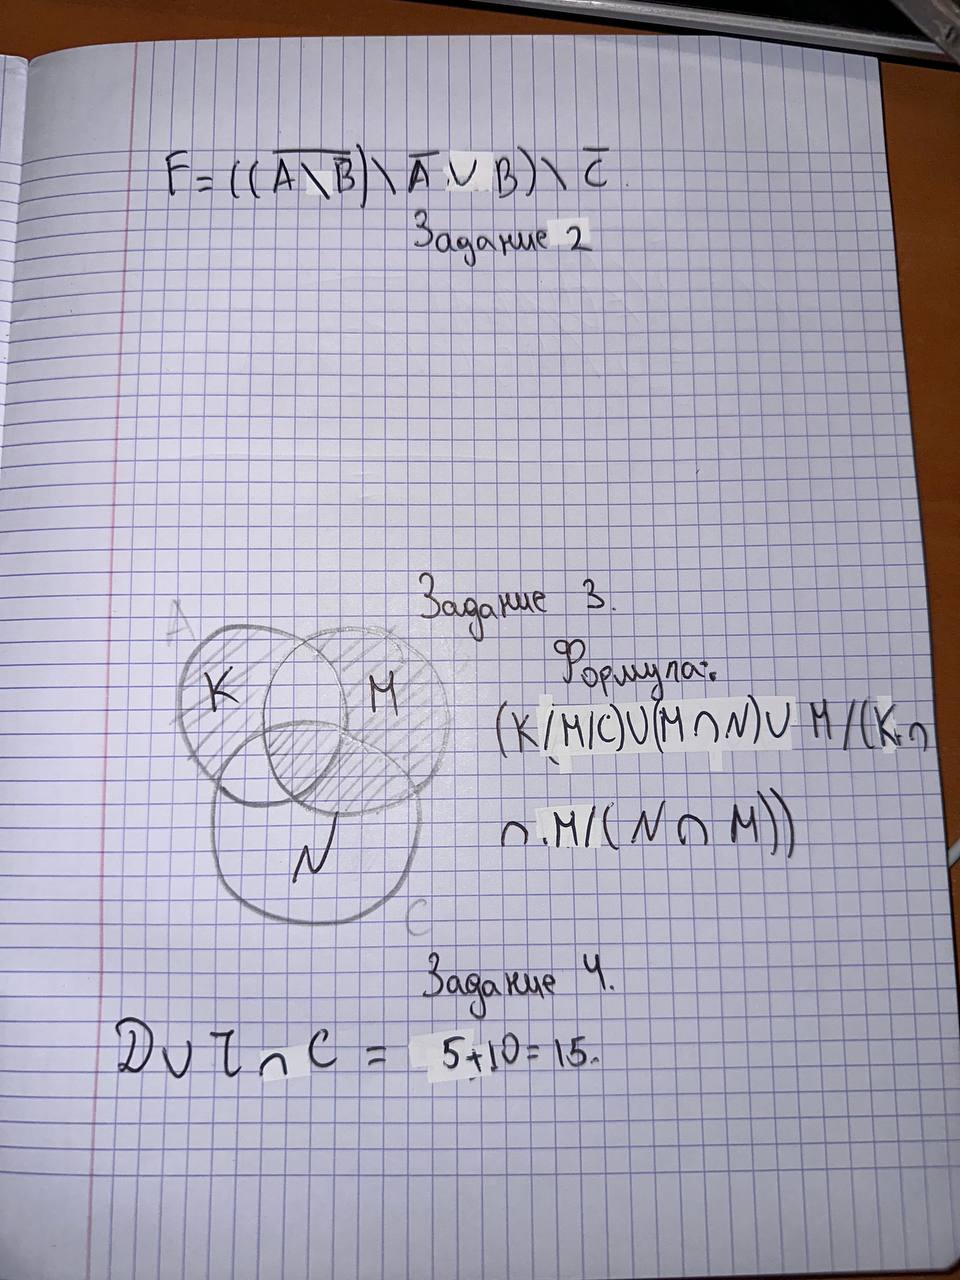 F = ((\overline{A \ B}) \ \overline{A} ∪ B) \ \overline{C}.
Задание 2
Задание 3.
A
K
M
N
C
Формула:
(K/M/C)∪(M∩N)∪ M/(K∩
∩ M/(N∩M))
Задание 4.
D∪T∩C = 5+10=15.